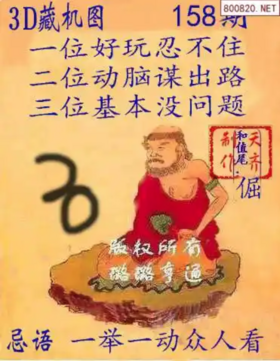 800820.NET
3D藏机图 158期
一位好玩忍不住
二位动脑谋出路
三位基本没问题
天齐
和值尾
制作
倔
版权所有
忌语 一举一动众人看